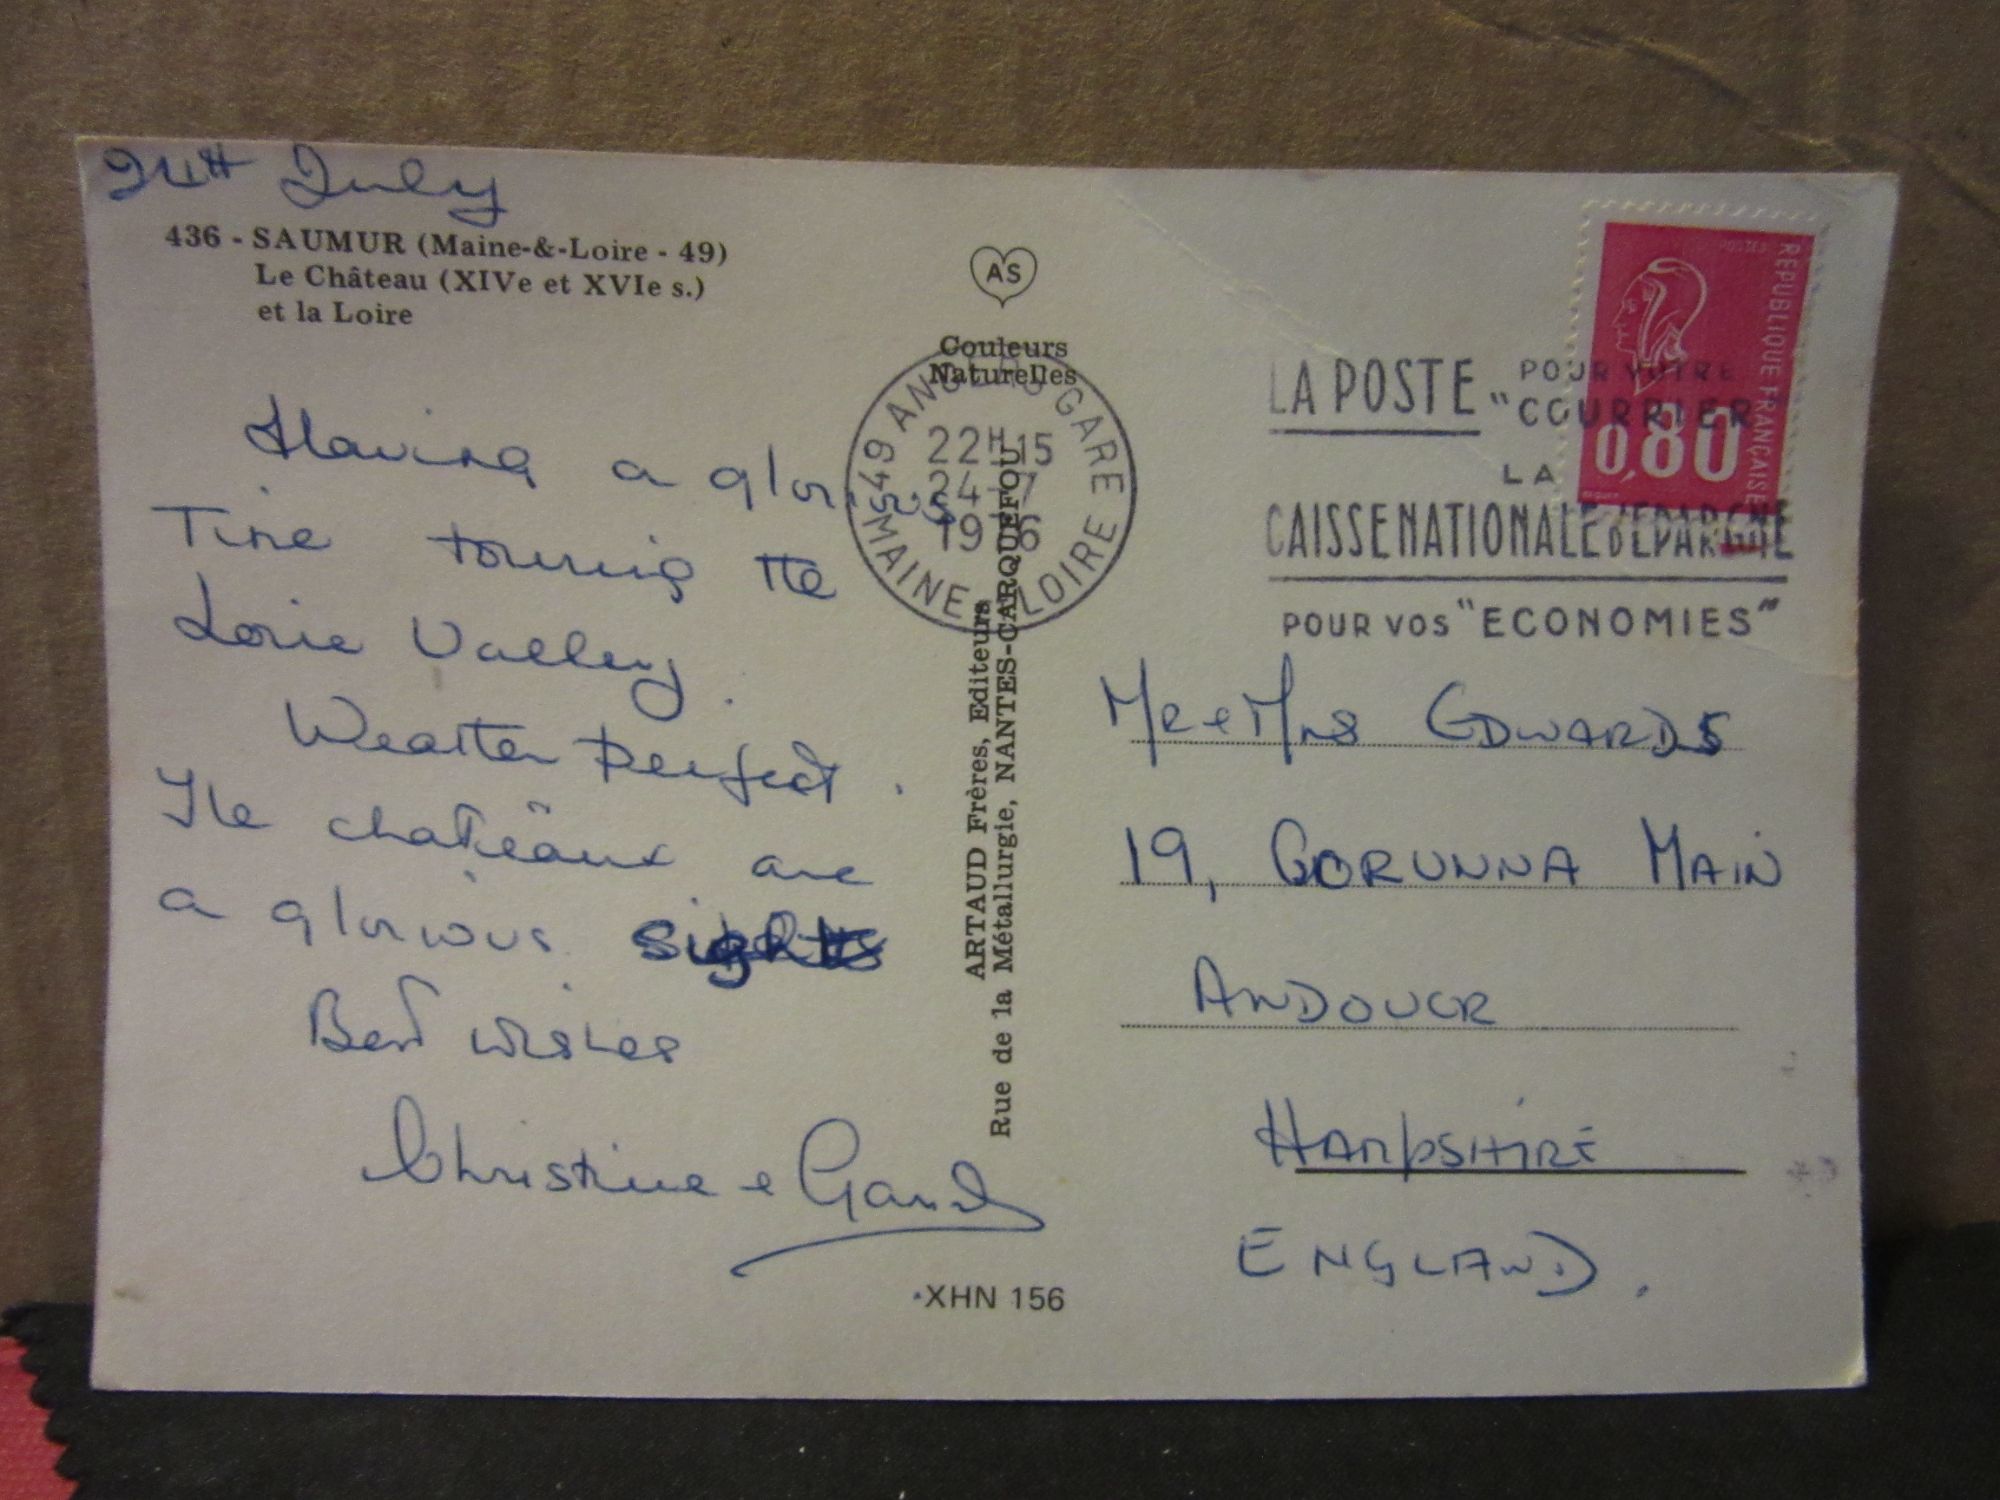 24th July
436 - SAUMUR (Maine-&-Loire - 49)
Le Château (XIVe et XVIe s.)
et la Loire
Having a glorious
Time touring the
Loire Valley.
Weather perfect.
The chateaux are
a glorious sight
Best wishes
Christine &
AS
Couleurs
Naturelles
ARTAUD Frères, Editeurs
Rue de la Métallurgie, NANTES-CARQUEFOU
XHN 156
49 ANGERS GARE
22H15
24-7
1976
MAINE LOIRE
LA POSTE POUR VOTRE
"COURRIER"
LA
CAISSE NATIONALE D'EPARGNE
POUR VOS "ECONOMIES"
REPUBLIQUE FRANÇAISE
POSTES
0,80
MR & MRS EDWARDS
19, CORUNNA MAIN
ANDOVER
HAMPSHIRE
ENGLAND.